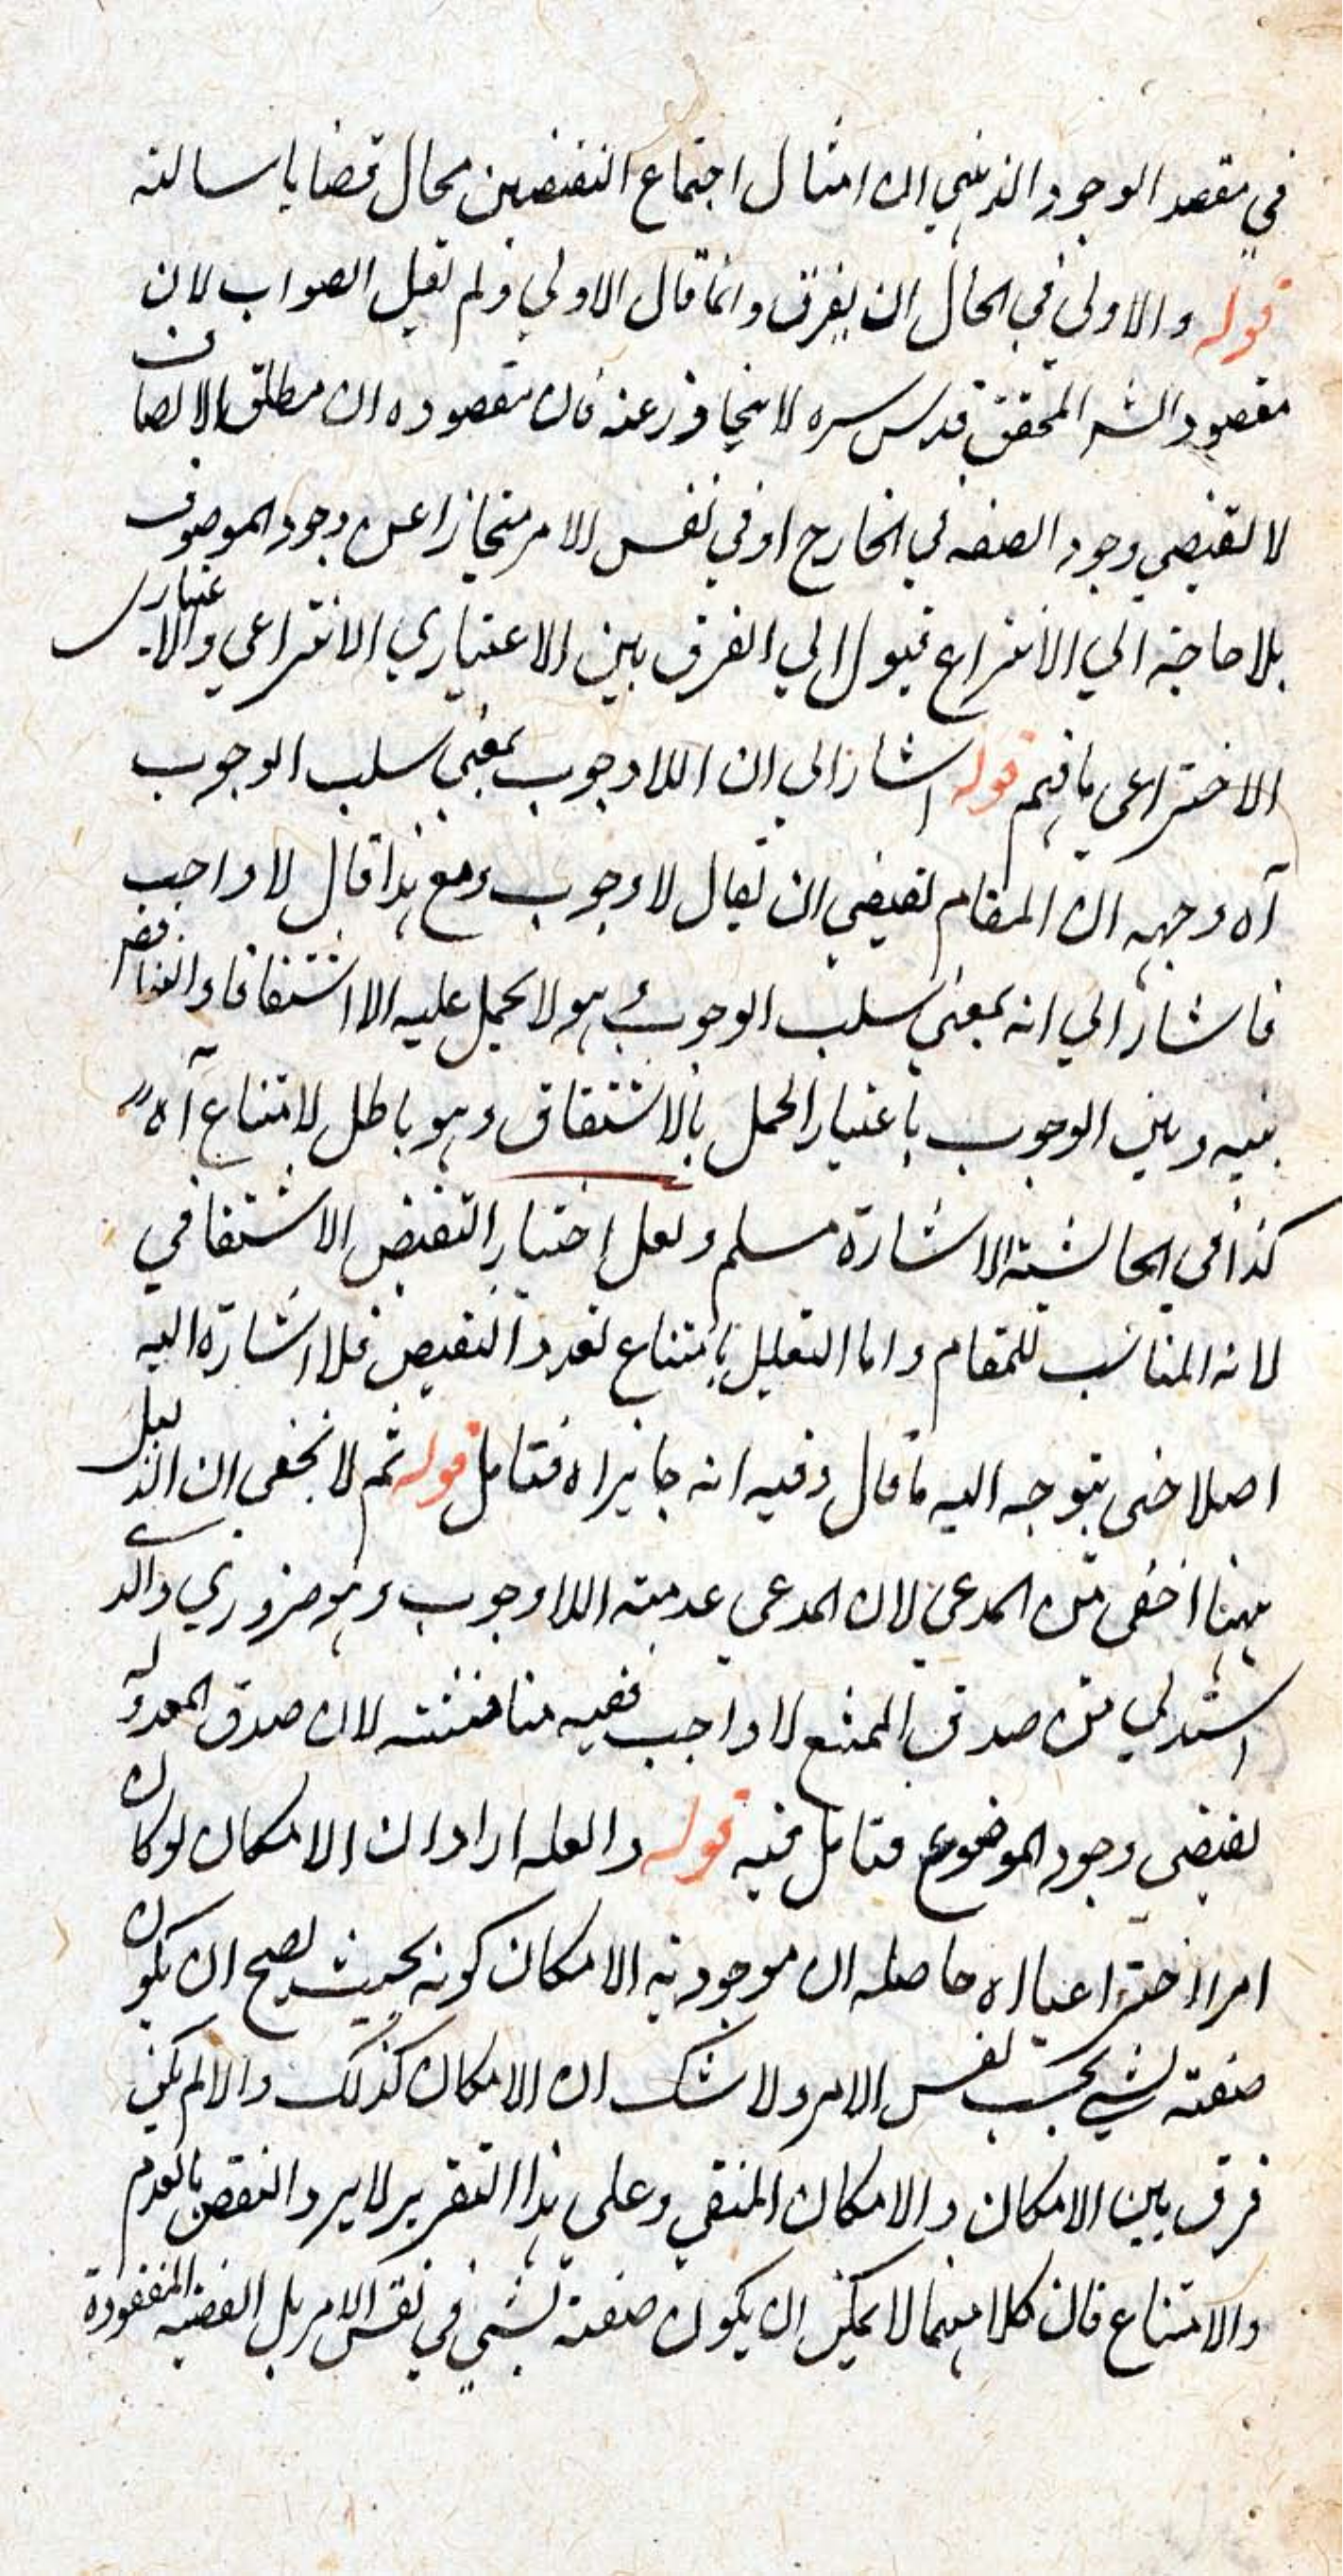 في مقصد الوجود الذهني ان امثال اجتماع النقيضين محال قضايا سالبة
قوله والاولى في الحال ان يفرق وانما قال الاولي ولم يقل الصواب لان
مقصود الشر المحقق قدس سره لا يتجاوز عنه فان مقصوده ان مطلق الاتصاف
لا يقتضي وجود الصفه في الخارج او في نفس الامر منحازا عن وجود الموصوف
بلا حاجة الي الانتزاع فيول الي الفرق بين الاعتباري الانتزاعي والاعتباري
الاختراعي فافهم قوله اشار الي ان اللاوجوب بمعني سلب الوجوب
آه وجهه ان المقام يقتضي ان يقال لا وجوب ومع هذا قال لا واجب
فاشار الي انه بمعني سلب الوجوب وهو لا يحمل عليه الا اشتقاقا والتناقض
بينه وبين الوجوب باعتبار الحمل بالاشتقاق وهو باطل لامتناع آه
كذا في الحاشية الاشارة مسلم ولعل اختيار النقيض الاشتقاقي
لانه المناسب للمقام واما التعليل بامتناع تعدد النقيض فلا اشارة اليه
اصلا حتى يتوجه اليه ما قال وفيه انه جايز اه فتامل قوله ثم لا يخفى ان الدليل
ههنا اخفى من المدعى لان المدعى عدمية اللاوجوب وهو ضروري والذي
استدل به من صدق الممتنع لا واجب ففيه مناقشة لان صدق المعدولة
يقتضي وجود الموضوع فتامل فيه قوله ولعله اراد ان الامكان لو كان
امرا اختراعيا اه حاصله ان موجودية الامكان كونه بحيث يصح ان يكون
صفته لشي بحسب نفس الامر ولا شك ان الامكان كذلك والا لم يكن
فرق بين الامكان والامكان المنفي وعلى هذا التقرير لا يرد النقض بالعدم
والامتناع فان كلا منهما لا يمكن ان يكون صفة لشي في نفس الامر بل القضيه المعقودة